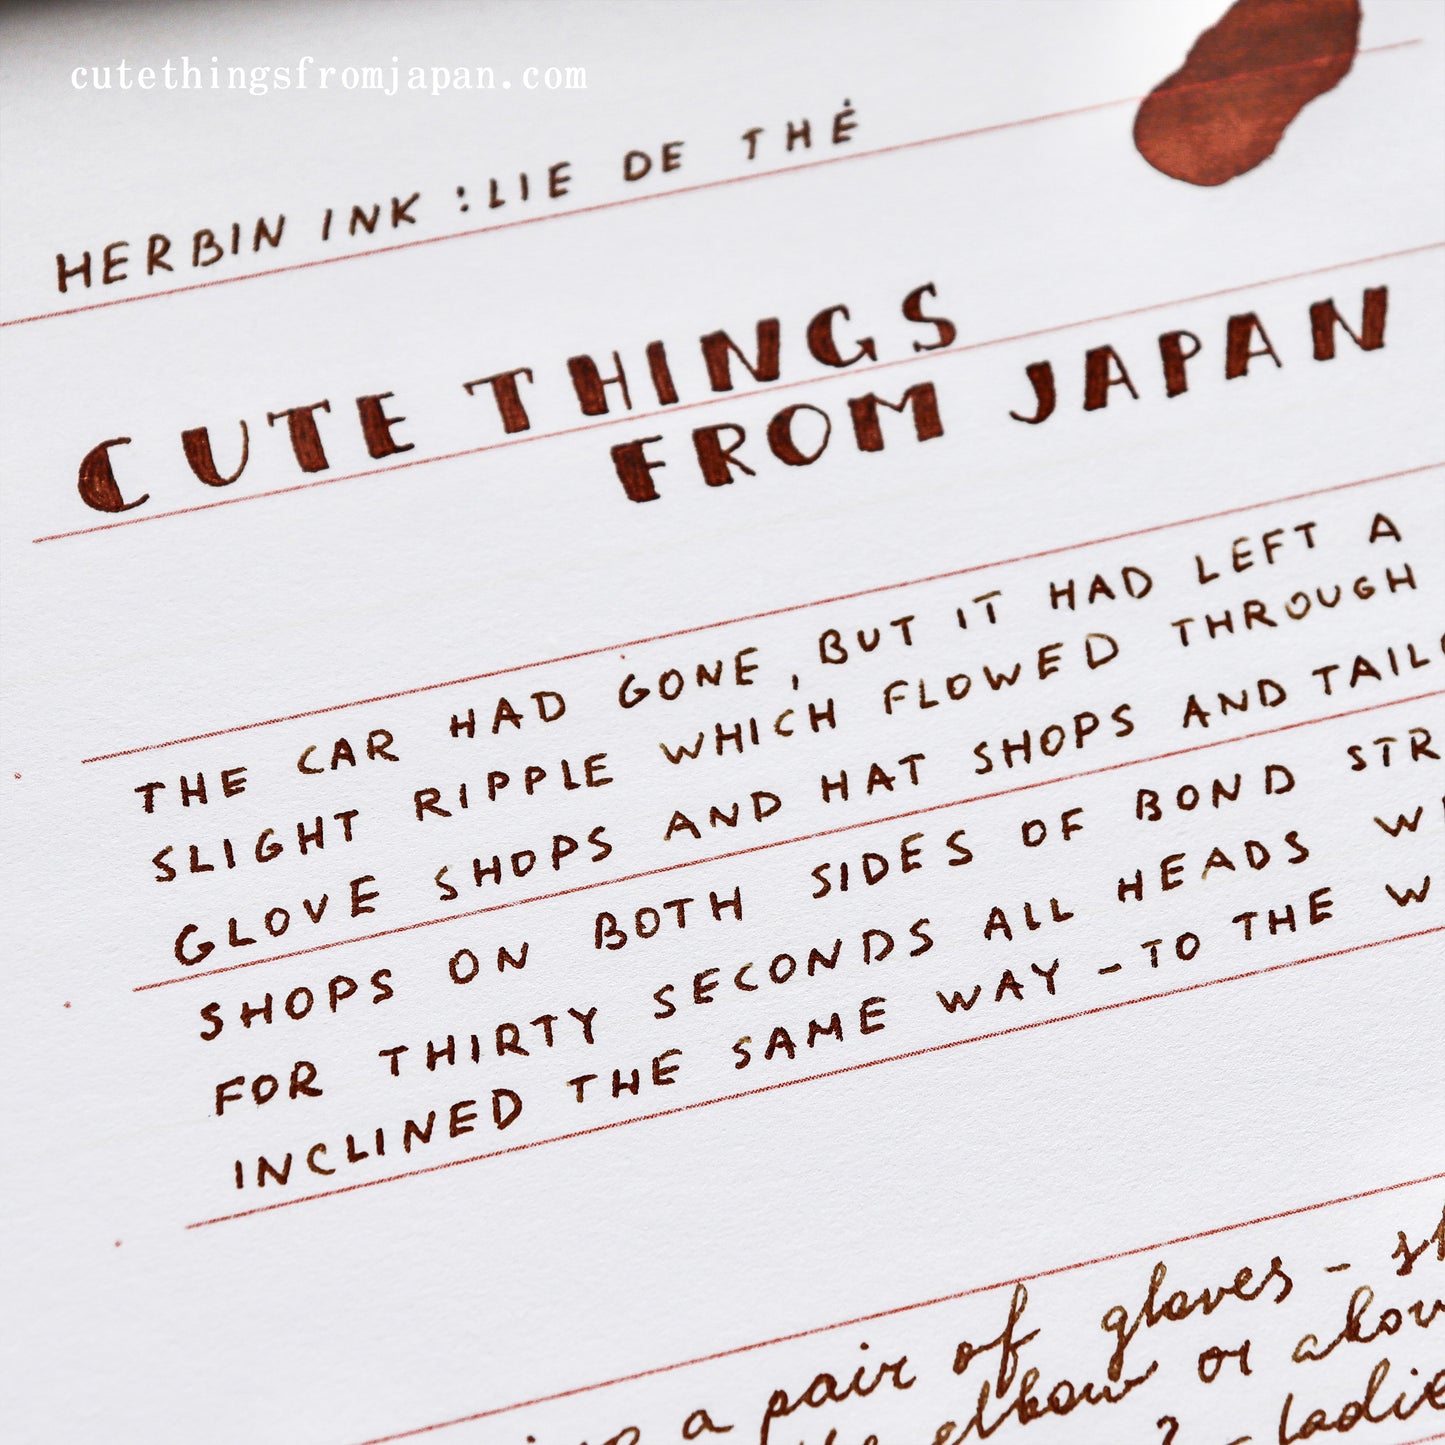 cutethingsfromjapan.com
HERBIN INK : LIE DE THÉ
CUTE THINGS
FROM JAPAN
THE CAR HAD GONE, BUT IT HAD LEFT A
SLIGHT RIPPLE WHICH FLOWED THROUGH
GLOVE SHOPS AND HAT SHOPS AND TAILO
SHOPS ON BOTH SIDES OF BOND STR
FOR THIRTY SECONDS ALL HEADS W
INCLINED THE SAME WAY - TO THE W
a pair of gloves - sh
elbow or abov
? - ladie